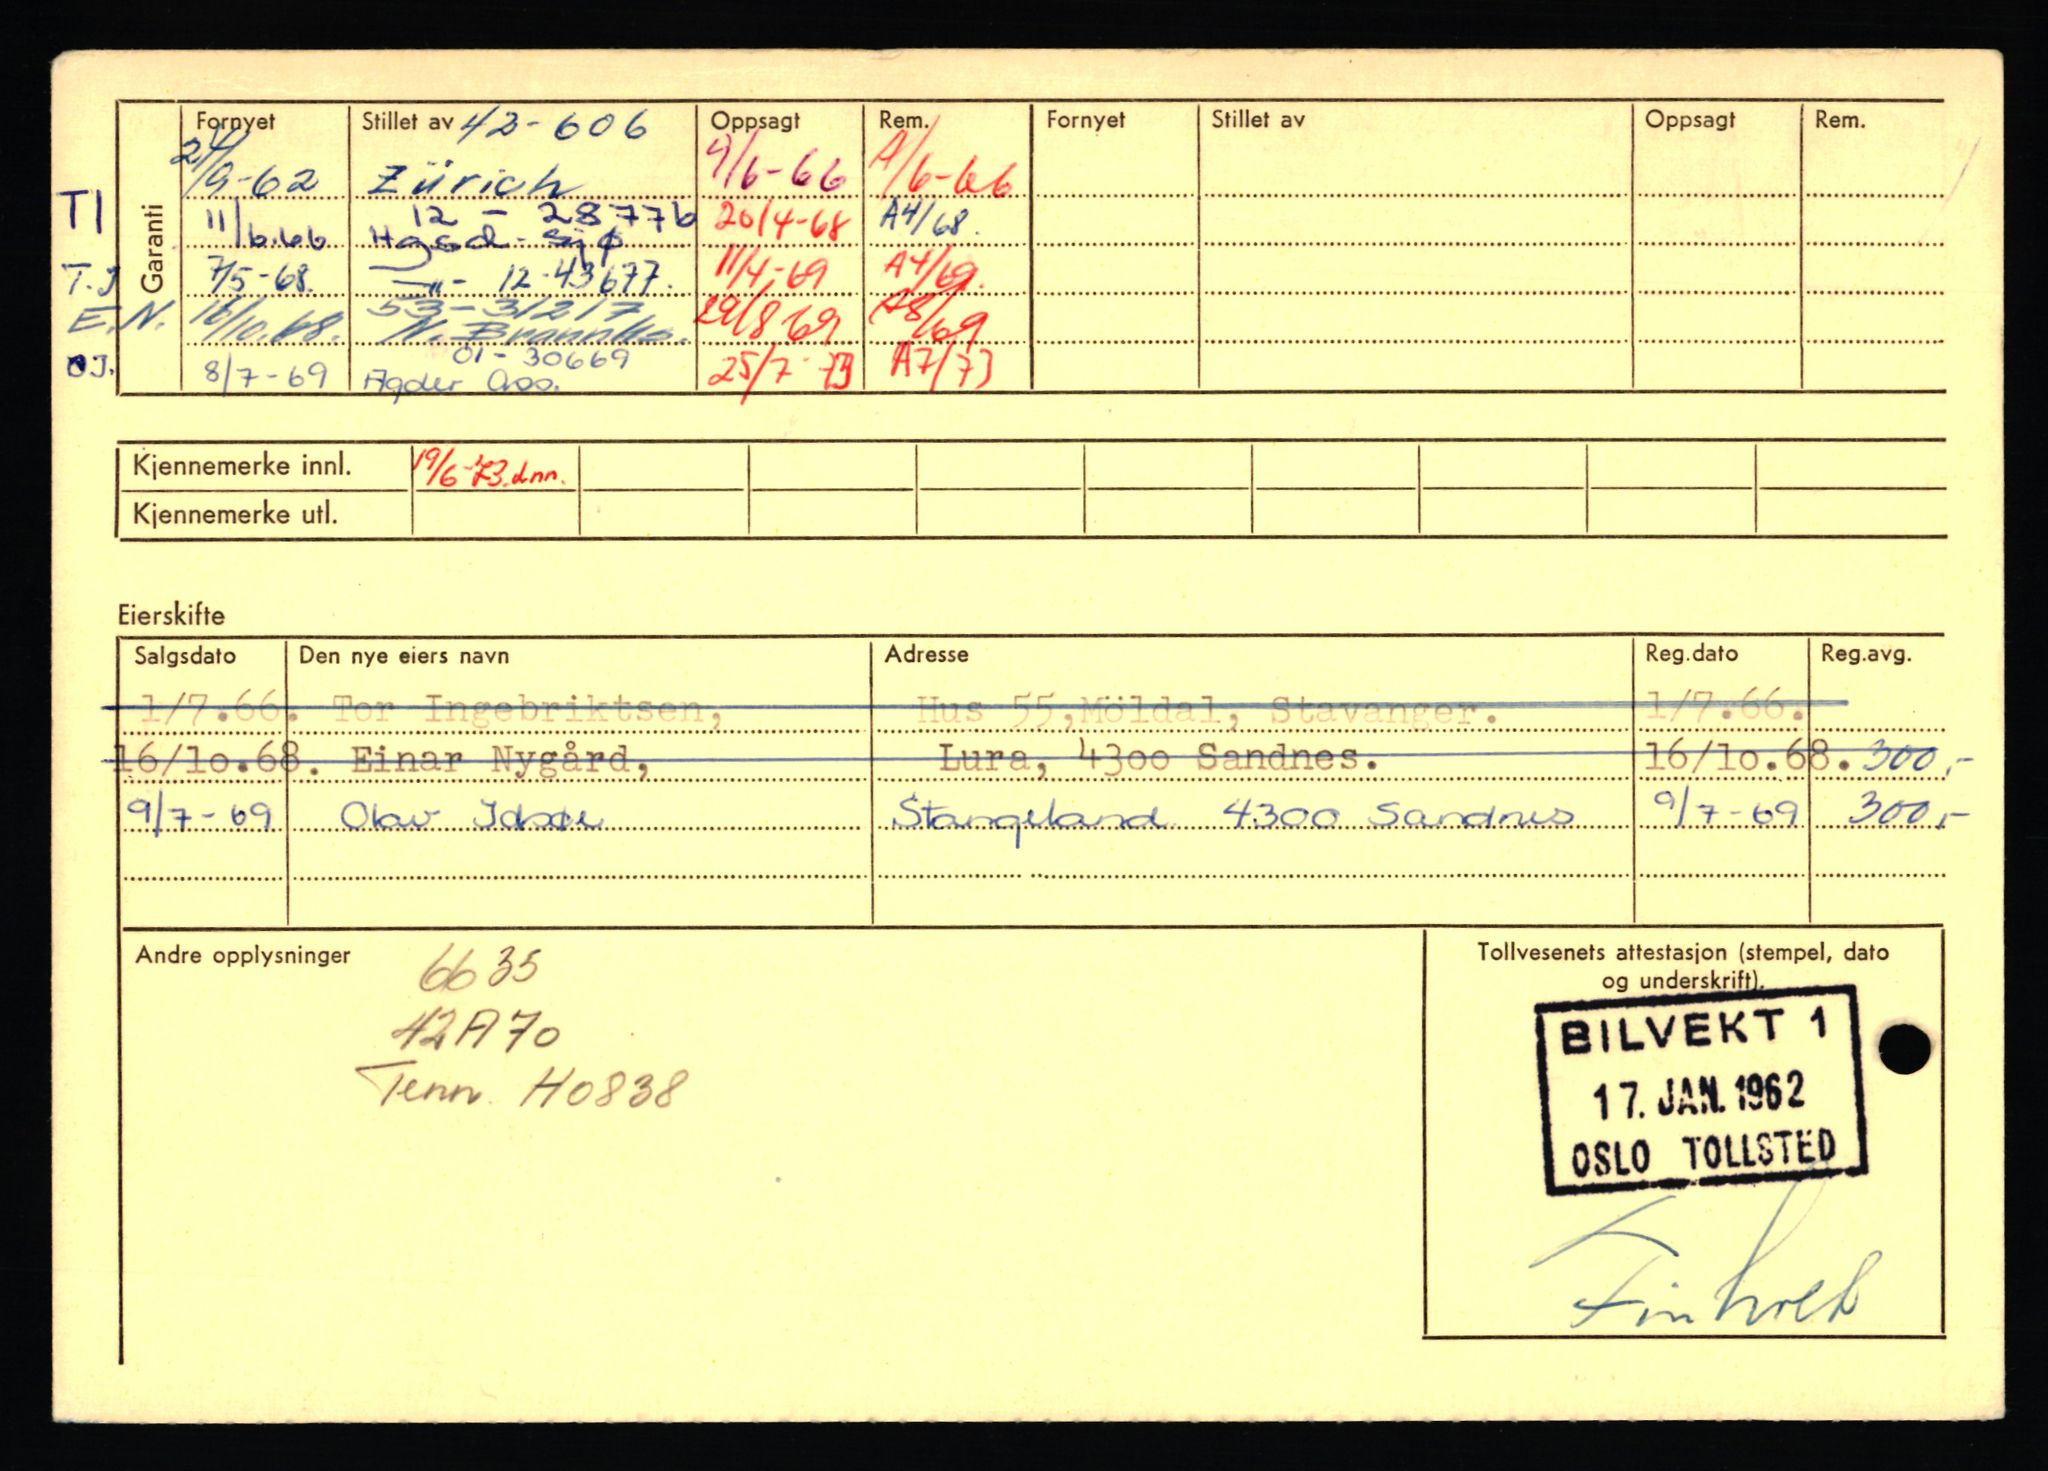 Fornyet Stillet av 42-606 Oppsagt Rem. Fornyet Stillet av Oppsagt Rem.
Garanti
24/9-62 Zürich 9/6-66 A/6-66
TI 11/6.66 12 - 28776 20/4-68 A4/68.
T.I 7/5-68. -"- 12-43677. 11/4-69 A4/69.
E.N. 16/10.68. 53-31217 29/8 69 A8/69
OJ. 8/7-69 01-30669 25/7-73 A7/73
Agder Ass.
Kjennemerke innl. 19/6-73. dnn.
Kjennemerke utl.
Eierskifte
Salgsdato Den nye eiers navn Adresse Reg.dato Reg.avg.
1/7.66. Tor Ingebriktsen, Hus 55,Möldal, Stavanger. 1/7.66.
16/1o.68. Einar Nygård, Lura, 43oo Sandnes. 16/1o.68. 300,-
9/7-69 Olav Idsøe Stangeland 4300 Sandnes 9/7-69 300,-
Andre opplysninger
6635
42A70
Tenn. H0838
Tollvesenets attestasjon (stempel, dato
og underskrift).
BILVEKT 1
17. JAN. 1962
OSLO TOLLSTED